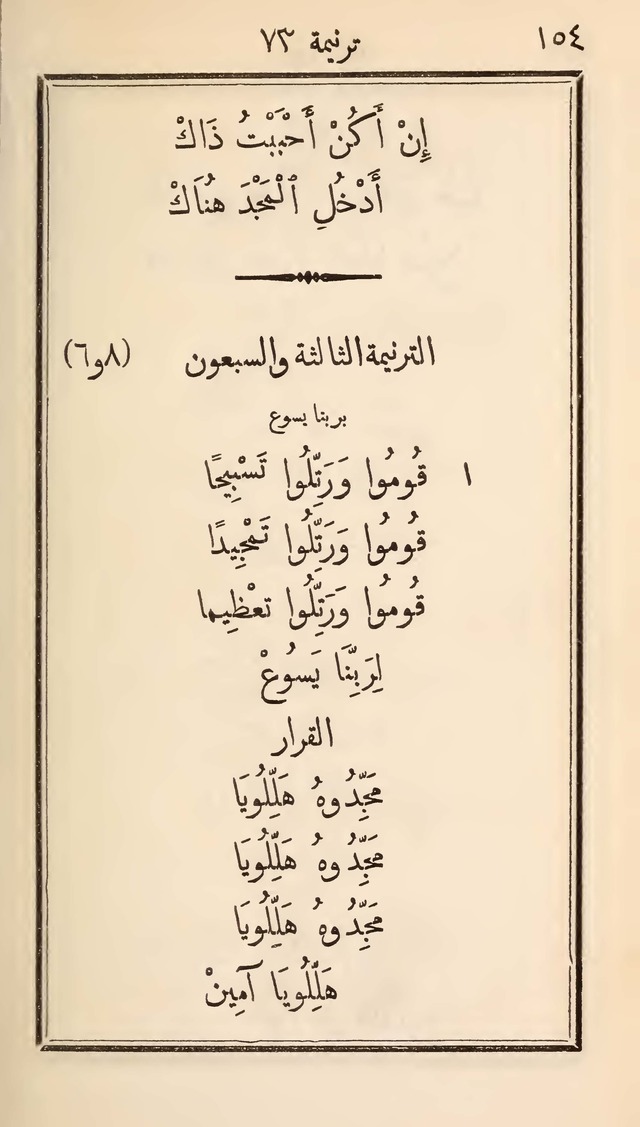 ١٥٤ ترنيمة ٧٣
إِنْ أَكُنْ أَحْبَبْتُ ذَاكْ
أَدْخُلِ ٱلْمَجْدَ هُنَاكْ
الترنيمة الثالثة والسبعون (٨و٦)
بربنا يسوع
١ قُومُوا وَرَتِّلُوا تَسْبِيحًا
قُومُوا وَرَتِّلُوا تَمْجِيدًا
قُومُوا وَرَتِّلُوا تعْظِيما
لِرَبِّنَا يَسُوعْ
القرار
مَجِّدُوهُ هَلِّلُويَا
مَجِّدُوهُ هَلِّلُويَا
مَجِّدُوهُ هَلِّلُويَا
هَلِّلُويَا آمِينْ